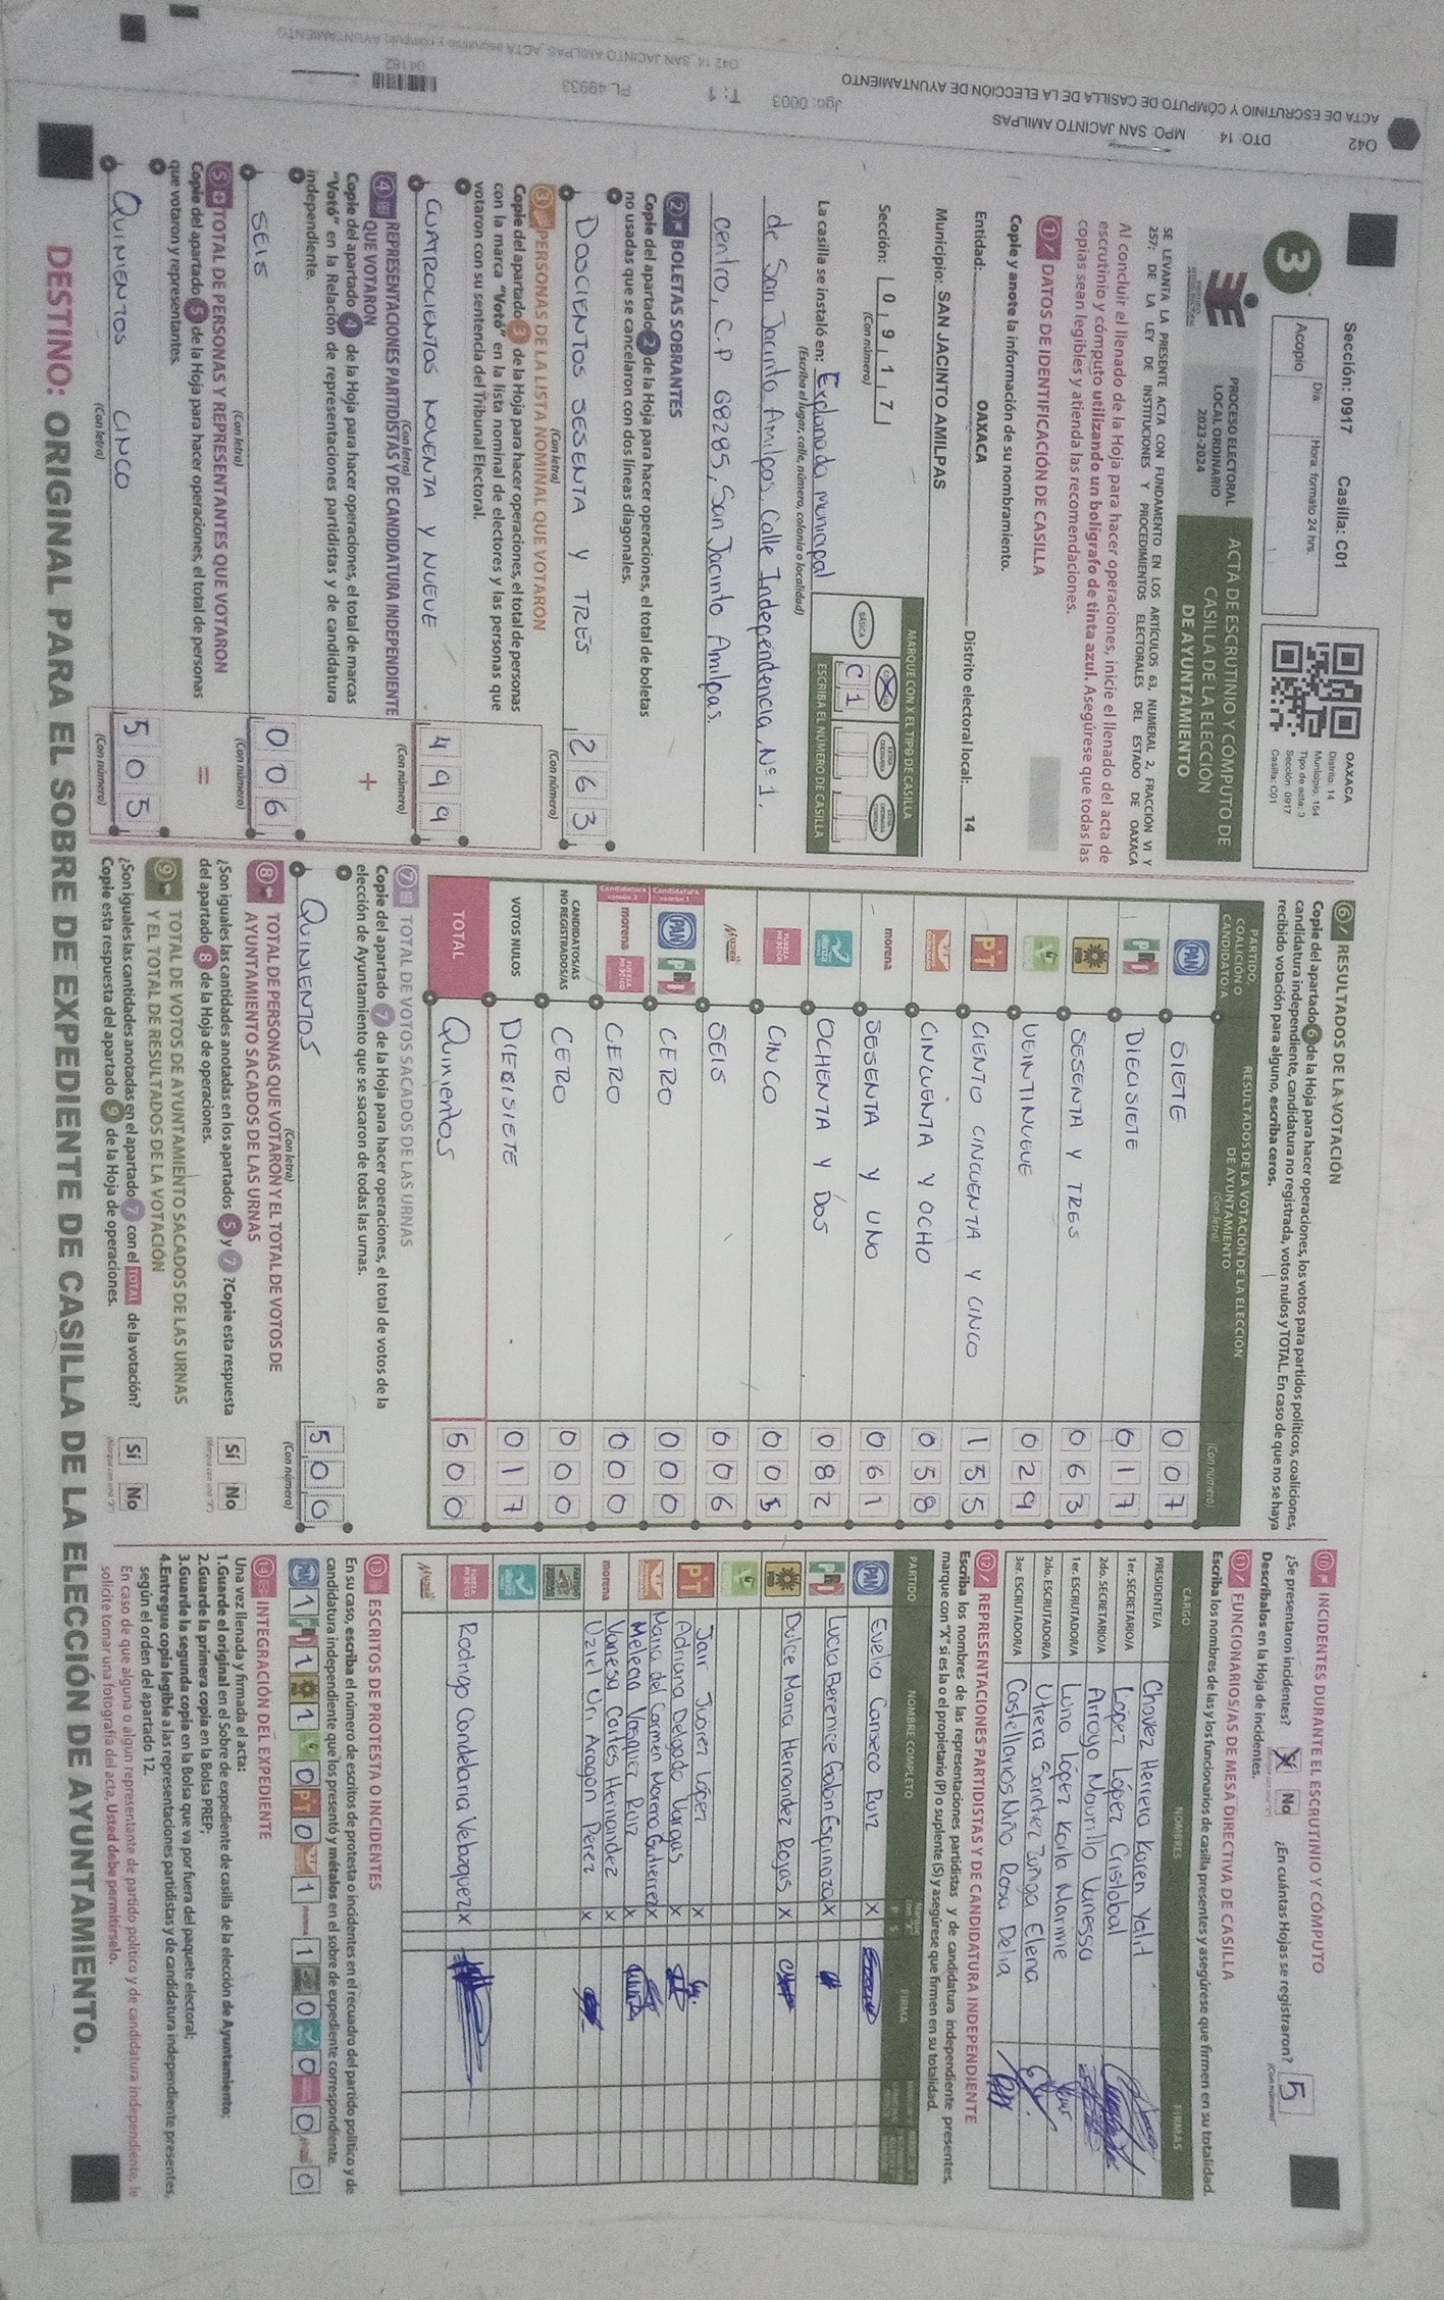 042 DTO: 14 MPO: SAN JACINTO AMILPAS
ACTA DE ESCRUTINIO Y CÓMPUTO DE CASILLA DE LA ELECCIÓN DE AYUNTAMIENTO
Jgo: 0003 T: 1 FL 49933
Sección: 0917 Casilla: C01
3
Acopio
Día
Hora: formato 24 hrs.
OAXACA
Distrito: 14
Municipio: 164
Tipo de acta: 3
Sección: 0917
Casilla: C01
PROCESO ELECTORAL
LOCAL ORDINARIO
2023-2024
ACTA DE ESCRUTINIO Y CÓMPUTO DE
CASILLA DE LA ELECCIÓN
DE AYUNTAMIENTO
SE LEVANTA LA PRESENTE ACTA CON FUNDAMENTO EN LOS ARTÍCULOS 63, NUMERAL 2, FRACCIÓN VI Y
257; DE LA LEY DE INSTITUCIONES Y PROCEDIMIENTOS ELECTORALES DEL ESTADO DE OAXACA
Al concluir el llenado de la Hoja para hacer operaciones, inicie el llenado del acta de
escrutinio y cómputo utilizando un bolígrafo de tinta azul. Asegúrese que todas las
copias sean legibles y atienda las recomendaciones.
1 DATOS DE IDENTIFICACIÓN DE CASILLA
Copie y anote la información de su nombramiento.
Entidad: OAXACA Distrito electoral local: 14
Municipio: SAN JACINTO AMILPAS
Sección: 0 9 1 7
(Con número)
MARQUE CON X EL TIPO DE CASILLA
BÁSICA
C 1
ESCRIBA EL NÚMERO DE CASILLA
La casilla se instaló en: Explanada municipal
(Escriba el lugar, calle, número, colonia o localidad)
de San Jacinto Amilpas. Calle Independencia Nº 1.
centro, C.P 68285, San Jacinto Amilpas.
2 BOLETAS SOBRANTES
Copie del apartado 2 de la Hoja para hacer operaciones, el total de boletas
no usadas que se cancelaron con dos líneas diagonales.
DOSCIENTOS SESENTA Y TRES 2 6 3
(Con letra) (Con número)
3 PERSONAS DE LA LISTA NOMINAL QUE VOTARON
Copie del apartado 3 de la Hoja para hacer operaciones, el total de personas
con la marca "Votó" en la lista nominal de electores y las personas que
votaron con su sentencia del Tribunal Electoral.
CUATROCIENTOS NOVENTA Y NUEVE 4 9 9
(Con letra) (Con número)
4 REPRESENTACIONES PARTIDISTAS Y DE CANDIDATURA INDEPENDIENTE
QUE VOTARON
Copie del apartado 4 de la Hoja para hacer operaciones, el total de marcas
"Votó" en la Relación de representaciones partidistas y de candidatura
independiente.
+
SEIS 0 0 6
(Con letra) (Con número)
5 TOTAL DE PERSONAS Y REPRESENTANTES QUE VOTARON
Copie del apartado 5 de la Hoja para hacer operaciones, el total de personas
que votaron y representantes.
=
QUINIENTOS CINCO 5 0 5
(Con letra) (Con número)
6 RESULTADOS DE LA VOTACIÓN
Copie del apartado 6 de la Hoja para hacer operaciones, los votos para partidos políticos, coaliciones,
candidatura independiente, candidatura no registrada, votos nulos y TOTAL. En caso de que no se haya
recibido votación para alguno, escriba ceros.
PARTIDO,
COALICIÓN O
CANDIDATO/A
RESULTADOS DE LA VOTACIÓN DE LA ELECCIÓN
DE AYUNTAMIENTO
(Con letra)
(Con número)
PAN SIETE 0 0 7
PRI DIECISIETE 0 1 7
PRD SESENTA Y TRES 0 6 3
VEINTINUEVE 0 2 9
PT CIENTO CINCUENTA Y CINCO 1 5 5
CINCUENTA Y OCHO 0 5 8
morena SESENTA Y UNO 0 6 1
OCHENTA Y DOS 0 8 2
CINCO 0 0 5
SEIS 0 0 6
PAN PRI CERO 0 0 0
morena CERO 0 0 0
CANDIDATOS/AS
NO REGISTRADOS/AS CERO 0 0 0
VOTOS NULOS DIECISIETE 0 1 7
TOTAL Quinientos 5 0 0
7 TOTAL DE VOTOS SACADOS DE LAS URNAS
Copie del apartado 7 de la Hoja para hacer operaciones, el total de votos de la
elección de Ayuntamiento que se sacaron de todas las urnas.
QUINIENTOS 5 0 0
(Con letra) (Con número)
8 TOTAL DE PERSONAS QUE VOTARON Y EL TOTAL DE VOTOS DE
AYUNTAMIENTO SACADOS DE LAS URNAS
¿Son iguales las cantidades anotadas en los apartados 5 y 7 ?Copie esta respuesta
del apartado 8 de la Hoja de operaciones.
Sí No
9 TOTAL DE VOTOS DE AYUNTAMIENTO SACADOS DE LAS URNAS
Y EL TOTAL DE RESULTADOS DE LA VOTACIÓN
¿Son iguales las cantidades anotadas en el apartado 7 con el TOTAL de la votación?
Copie esta respuesta del apartado 9 de la Hoja de operaciones.
Sí No
10 INCIDENTES DURANTE EL ESCRUTINIO Y CÓMPUTO
¿Se presentaron incidentes? No ¿En cuántas Hojas se registraron? 5
Descríbalos en la Hoja de incidentes.
11 FUNCIONARIOS/AS DE MESA DIRECTIVA DE CASILLA
Escriba los nombres de las y los funcionarios de casilla presentes y asegúrese que firmen en su totalidad.
CARGO NOMBRES FIRMAS
PRESIDENTE/A Chavez Herrera Karen Yalit
1er. SECRETARIO/A López López Cristobal
2do. SECRETARIO/A Arroyo Maurillo Vanessa
1er. ESCRUTADOR/A Luna López Karla Marine
2do. ESCRUTADOR/A Utrera Sanchez Zuñiga Elena
3er. ESCRUTADOR/A Castellanos Niño Rosa Delia
12 REPRESENTACIONES PARTIDISTAS Y DE CANDIDATURA INDEPENDIENTE
Escriba los nombres de las representaciones partidistas y de candidatura independiente presentes,
marque con "X" si es la o el propietario (P) o suplente (S) y asegúrese que firmen en su totalidad.
PARTIDO NOMBRE COMPLETO FIRMA
PAN Evelia Canseco Ruiz X
PRI Lucia Berenice Galan Espinoza X
PRD Dulce Maria Hernandez Rojas X
PT Jair Juarez López X
Adriana Delgado Vargas X
Maria del Carmen Moreno Gutierrez X
Melean Vasquez Ruiz X
morena Vanessa Cortes Hernandez X
Uziel Uri Aragon Perez X
Rodrigo Candelaria Velazquez X
13 ESCRITOS DE PROTESTA O INCIDENTES
En su caso, escriba el número de escritos de protesta o incidentes en el recuadro del partido político y de
candidatura independiente que los presentó y métalos en el sobre de expediente correspondiente.
PAN 1 PRI 1 PRD 1 0 PT 0 1 1 0 0 0 0
14 INTEGRACIÓN DEL EXPEDIENTE
Una vez llenada y firmada el acta:
1.Guarde el original en el Sobre de expediente de casilla de la elección de Ayuntamiento;
2.Guarde la primera copia en la Bolsa PREP;
3.Guarde la segunda copia en la Bolsa que va por fuera del paquete electoral;
4.Entregue copia legible a las representaciones partidistas y de candidatura independiente presentes,
según el orden del apartado 12.
En caso de que alguna o algún representante de partido político y de candidatura independiente, le
solicite tomar una fotografía del acta, Usted debe permitírselo.
DESTINO: ORIGINAL PARA EL SOBRE DE EXPEDIENTE DE CASILLA DE LA ELECCIÓN DE AYUNTAMIENTO.